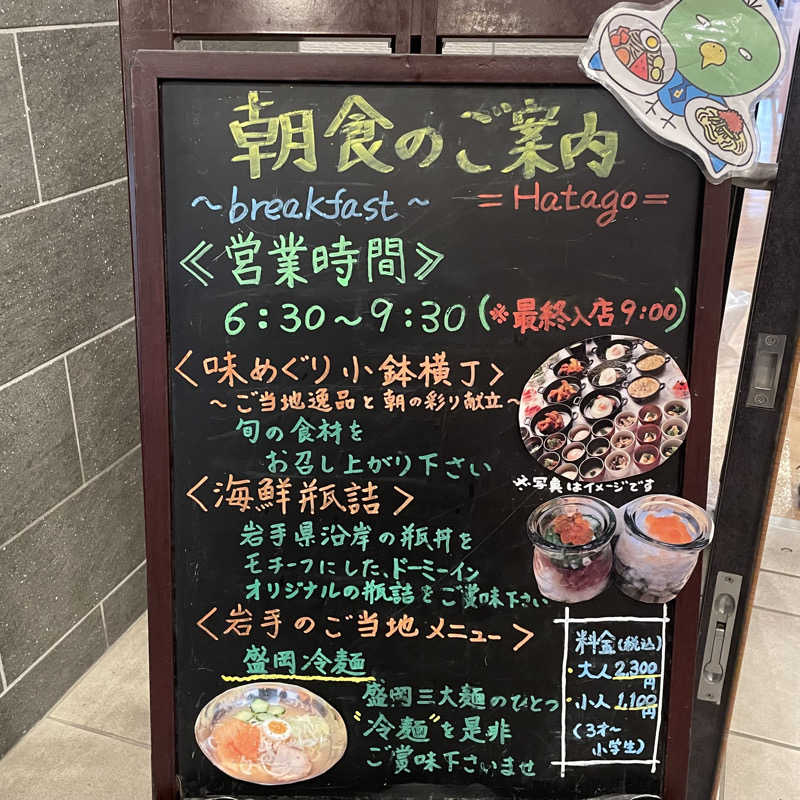 朝食のご案内
～breakfast～ =Hatago=
≪営業時間≫
6:30～9:30(※最終入店9:00)
<味めぐり小鉢横丁>
～ご当地逸品と朝の彩り献立～
旬の食材を
お召し上がり下さい
※写真はイメージです
<海鮮瓶詰>
岩手県沿岸の瓶丼を
モチーフにした、ドーミーイン
オリジナルの瓶詰をご賞味下さい
<岩手のご当地メニュー>
盛岡冷麺
盛岡三大麺のひとつ
"冷麺"を是非
ご賞味下さいませ
料金(税込)
・大人2,300円
・小人1,100円
(3才～
小学生)